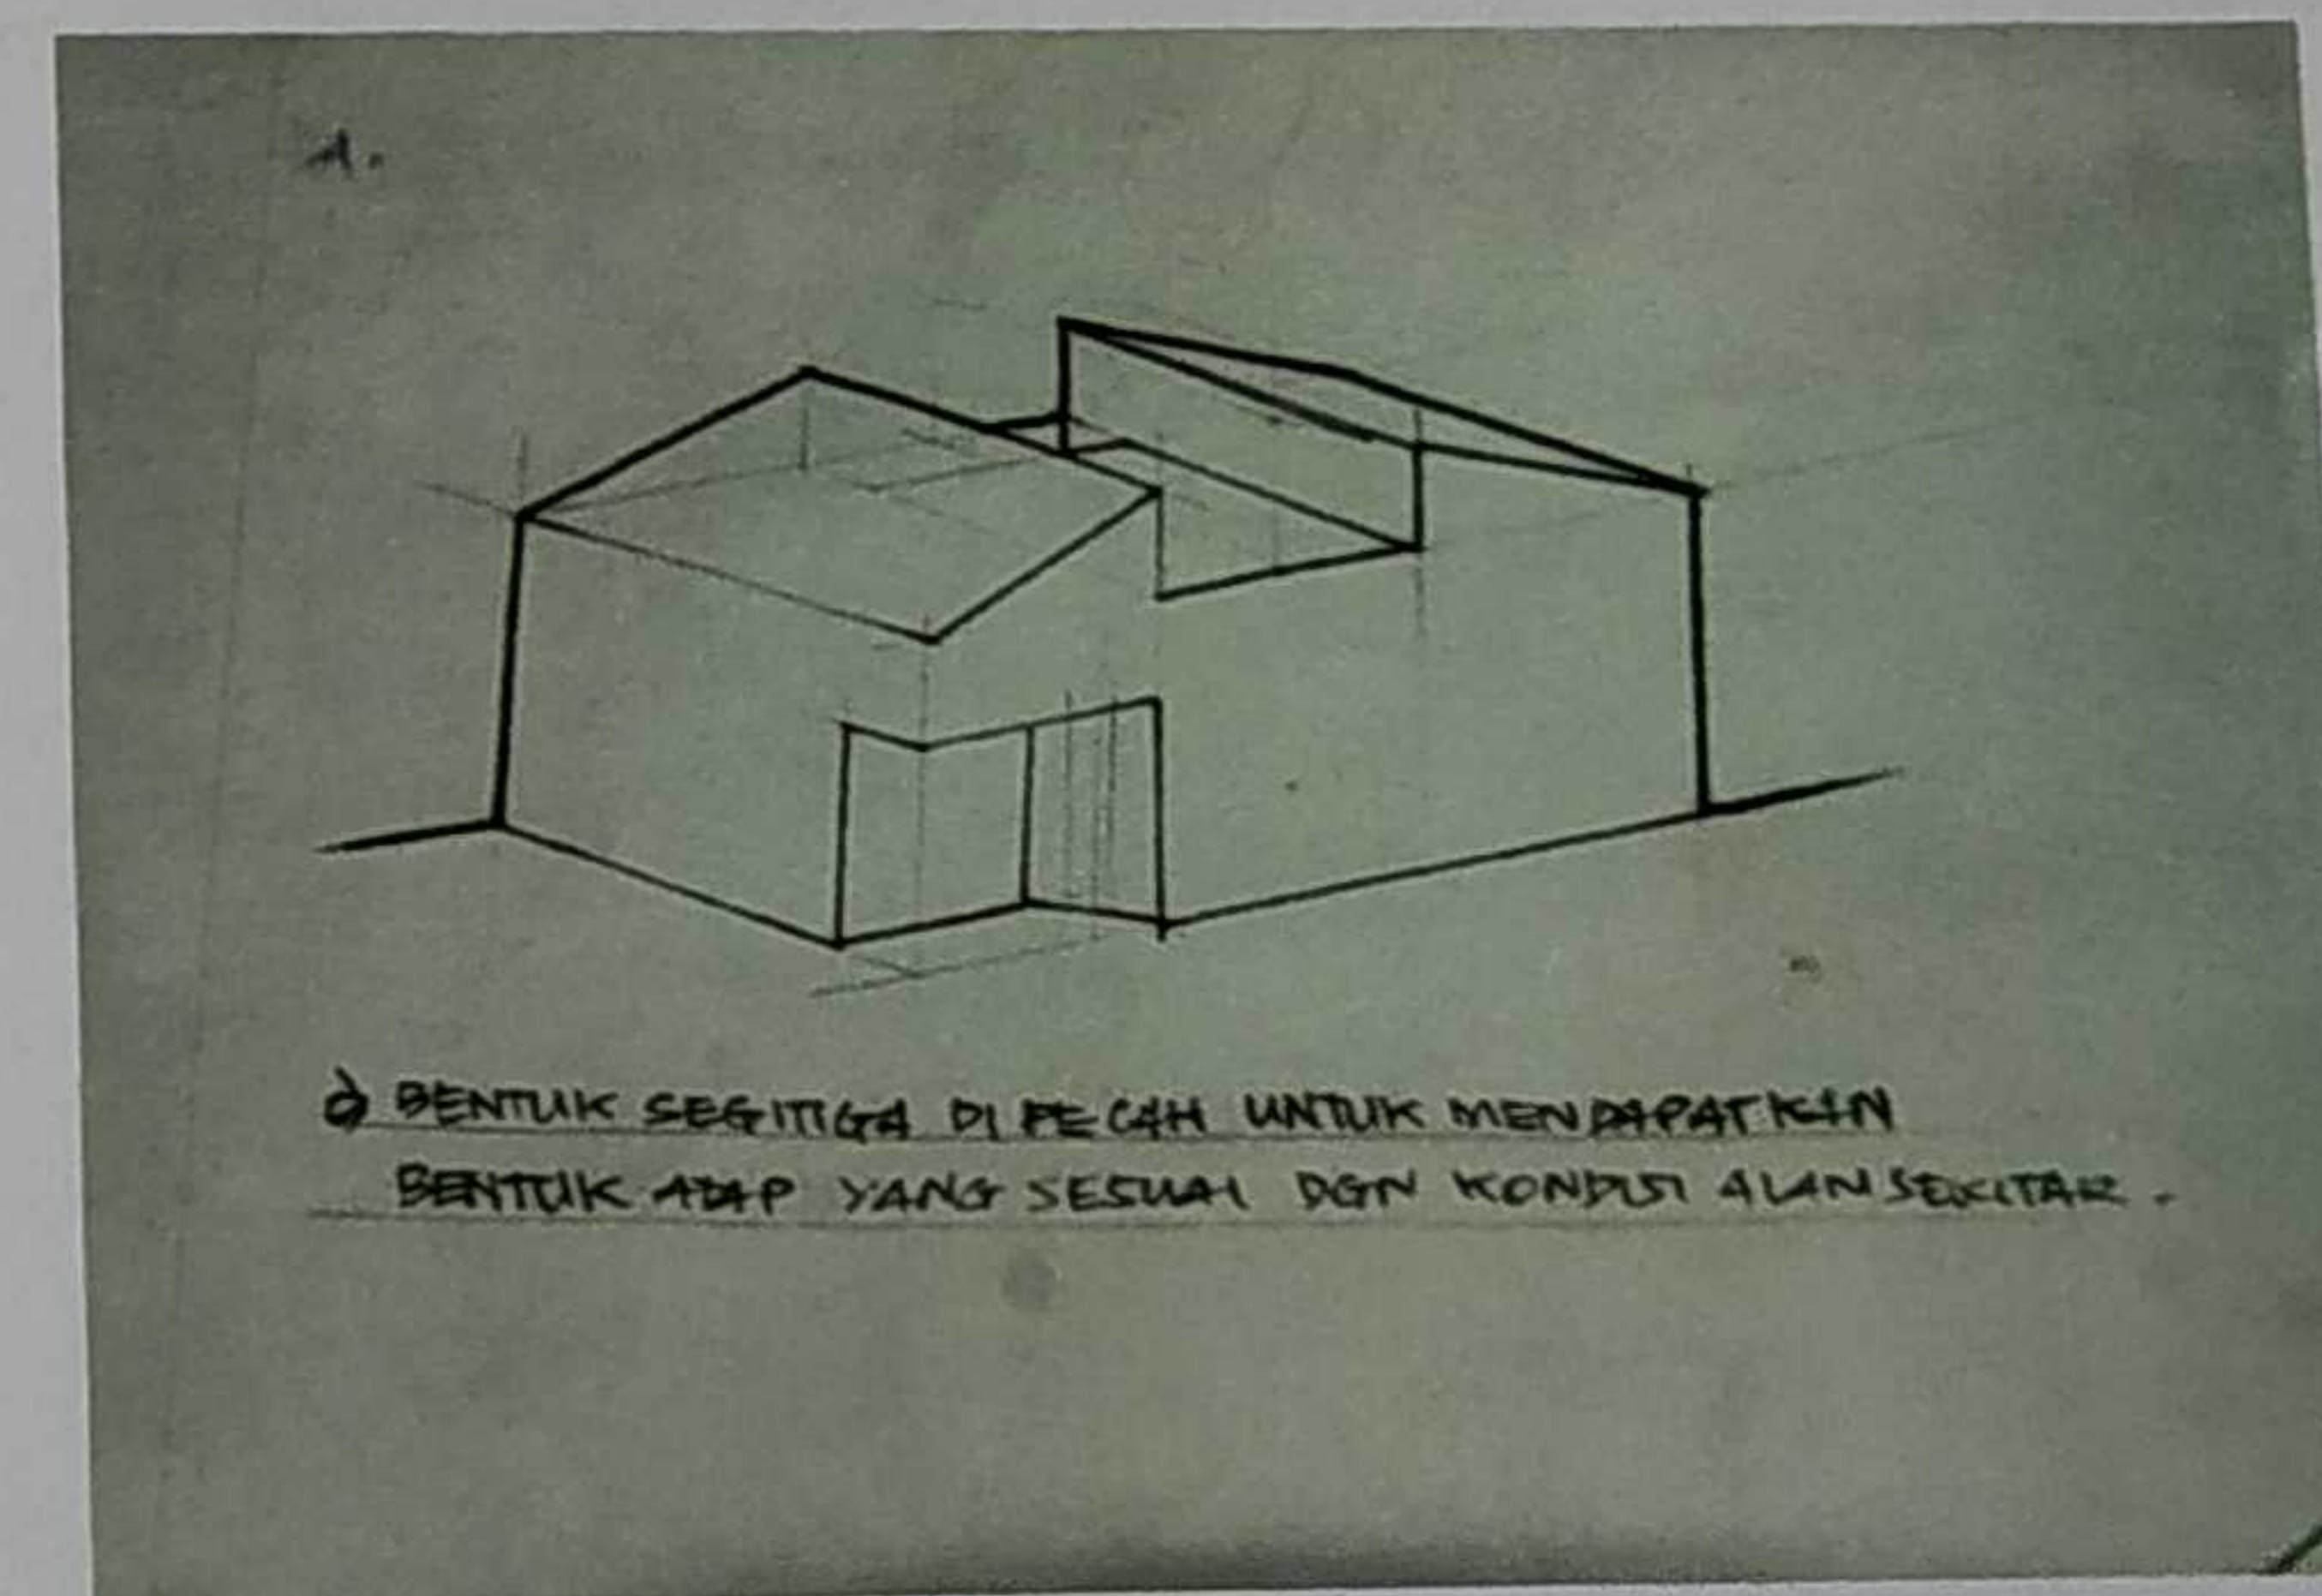 1.
BENTUK SEGITIGA DI PECAH UNTUK MENDAPATKAN
BENTUK ATAP YANG SESUAI DGN KONDISI ALAM SEKITAR.